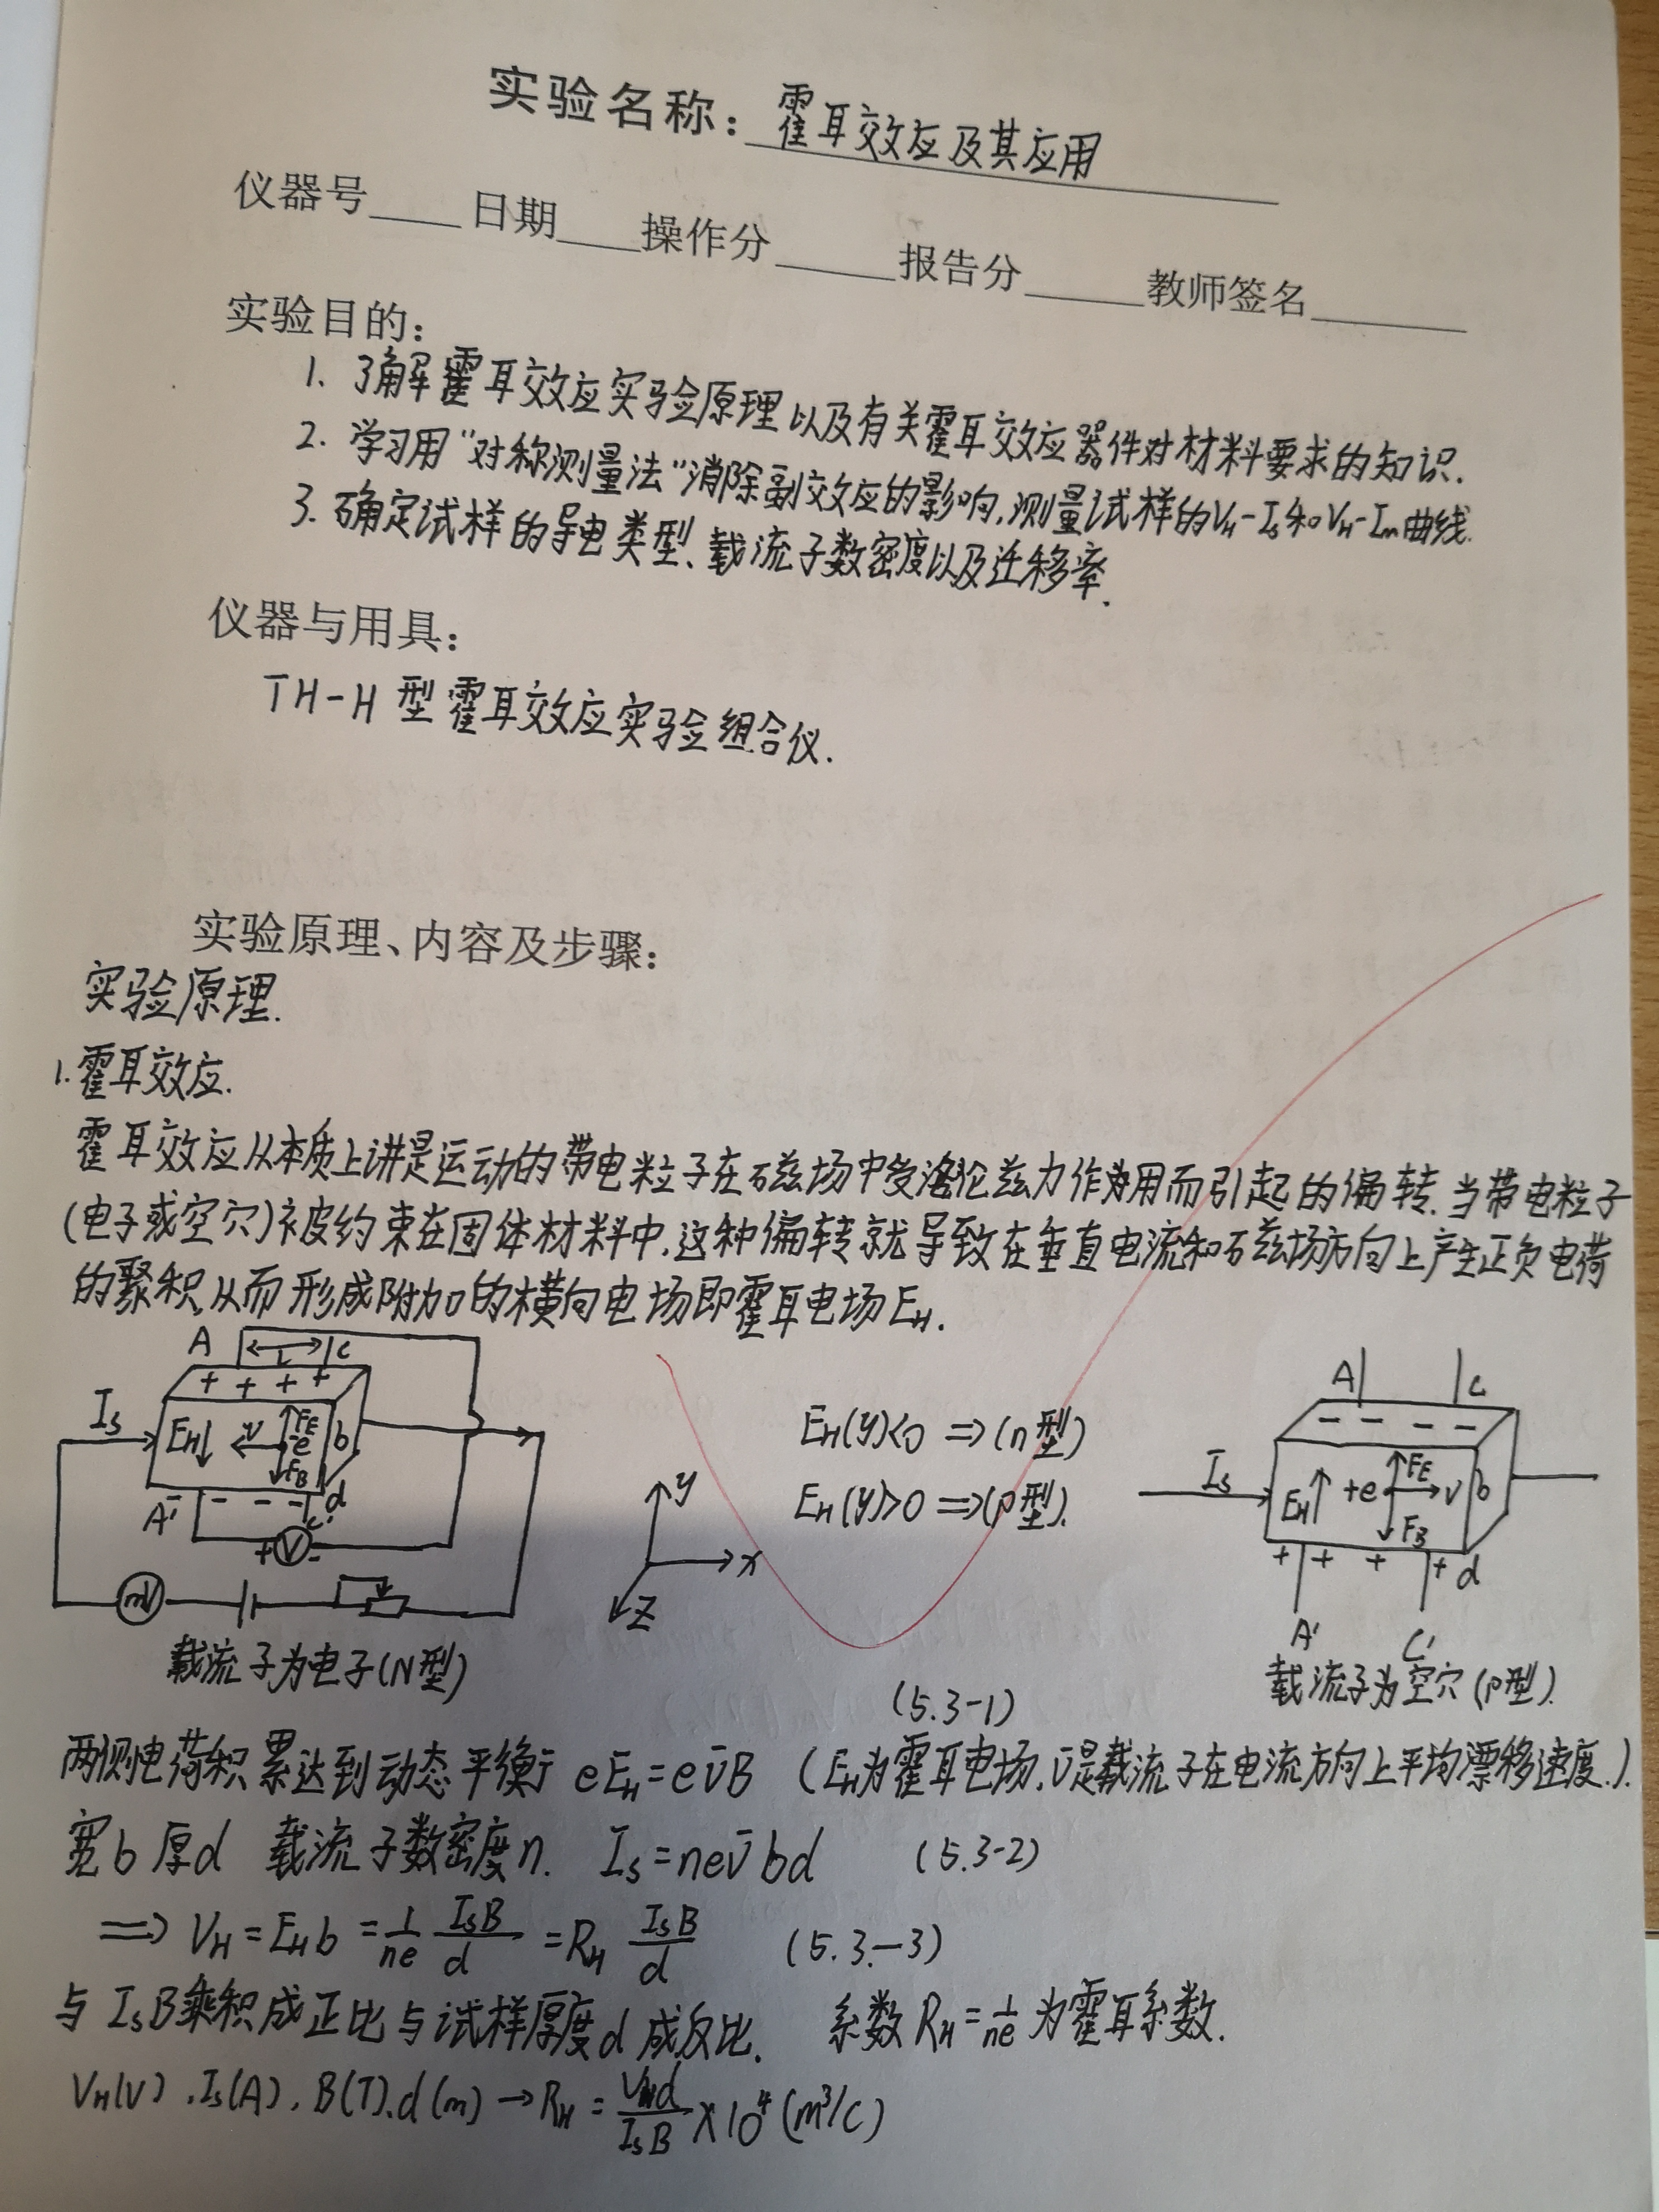 实验名称：霍耳效应及其应用
仪器号____日期____操作分____报告分____教师签名____
实验目的：
1. 了解霍耳效应实验原理以及有关霍耳效应器件对材料要求的知识.
2. 学习用"对称测量法"消除副效应的影响,测量试样的VH-Is和VH-Im曲线.
3. 确定试样的导电类型、载流子数密度以及迁移率.
仪器与用具：
TH-H型霍耳效应实验组合仪.
实验原理、内容及步骤：
实验原理.
1.霍耳效应.
霍耳效应从本质上讲是运动的带电粒子在磁场中受洛伦兹力作用而引起的偏转.当带电粒子
(电子或空穴)被约束在固体材料中,这种偏转就导致在垂直电流和磁场方向上产生正负电荷
的聚积,从而形成附加的横向电场即霍耳电场EH.
A L C
+ + + +
Is EH v FE -e FB b
A' - - - - C' d
+ V -
mV
载流子为电子(N型)
y x z
EH(y)<0 ⇒(n型)
EH(y)>0 ⇒(p型).
A C
- - - -
Is EH +e FE v FB b
+ + + + d
A' C'
载流子为空穴(p型).
(5.3-1)
两侧电荷积累达到动态平衡于 eEH=ev̄B (EH为霍耳电场.v̄是载流子在电流方向上平均漂移速度.).
宽b厚d 载流子数密度n. Is=nev̄bd (5.3-2)
⇒ VH=EHb=1/ne IsB/d=RH IsB/d (5.3-3)
与IsB乘积成正比与试样厚度d成反比. 系数RH=1/ne为霍耳系数.
VH(V).Is(A).B(T).d(m)→RH=VHd/IsB×10⁴(m³/C)